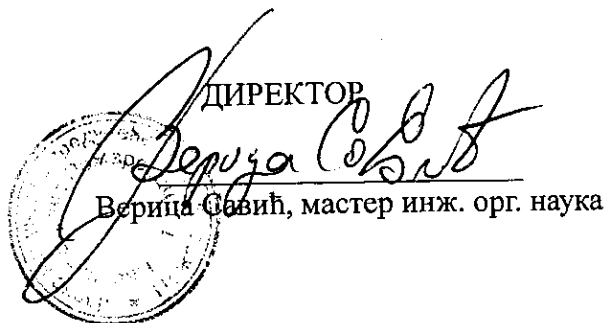 ДИРЕКТОР
Верица Савић
Верица Савић, мастер инж. орг. наука